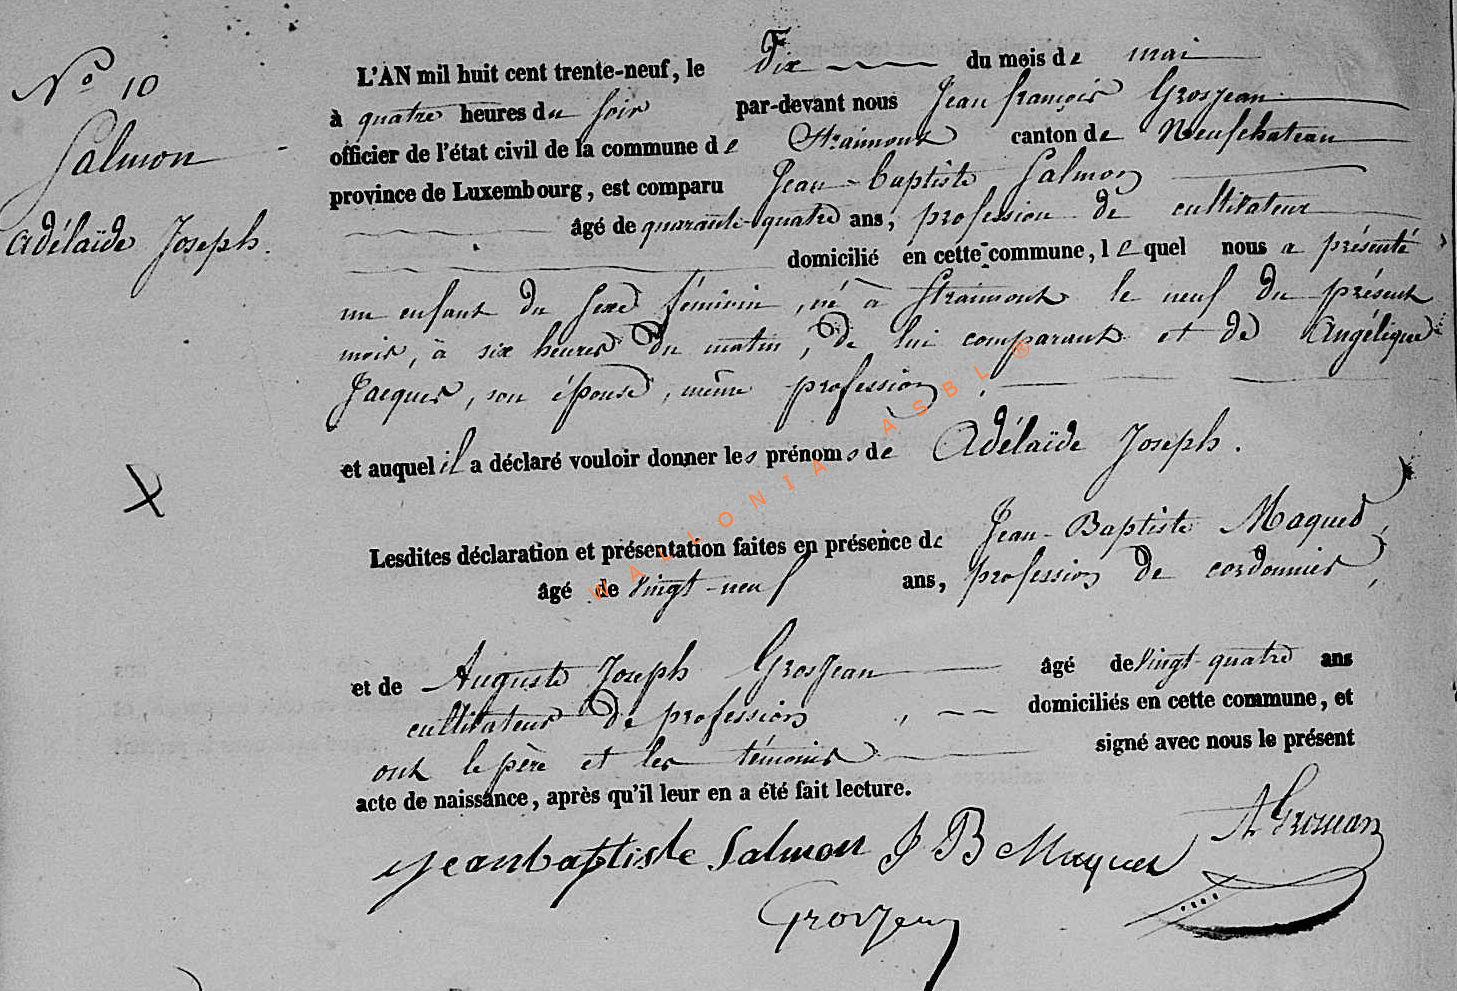 N° 10
Salmon
Adélaïde Joseph.
L'AN mil huit cent trente-neuf, le Dix du mois de mai
à quatre heures du soir par-devant nous Jean françois Grosjean
officier de l'état civil de la commune de Straimont canton de Neufchateau
province de Luxembourg, est comparu Jean-baptiste Salmon
âgé de quarante-quatre ans, profession de cultivateur
domicilié en cette commune, lequel nous a présenté
un enfant du sexe féminin, né à Straimont le neuf du présent
mois, à six heures du matin, de lui comparant et de Angélique
Jacques, son épouse, même profession,
et auquel il a déclaré vouloir donner les prénoms de Adélaïde Joseph.
Lesdites déclaration et présentation faites en présence de Jean-Baptiste Maques,
âgé de vingt-neuf ans, profession de cordonnier,
et de Auguste Joseph Grosjean âgé de vingt-quatre ans
cultivateur de profession, domiciliés en cette commune, et
ont le père et les témoins signé avec nous le présent
acte de naissance, après qu'il leur en a été fait lecture.
jeanbaptiste Salmon J B Maques A Grosjean
Grosjean
WALLONIA ASBL ®